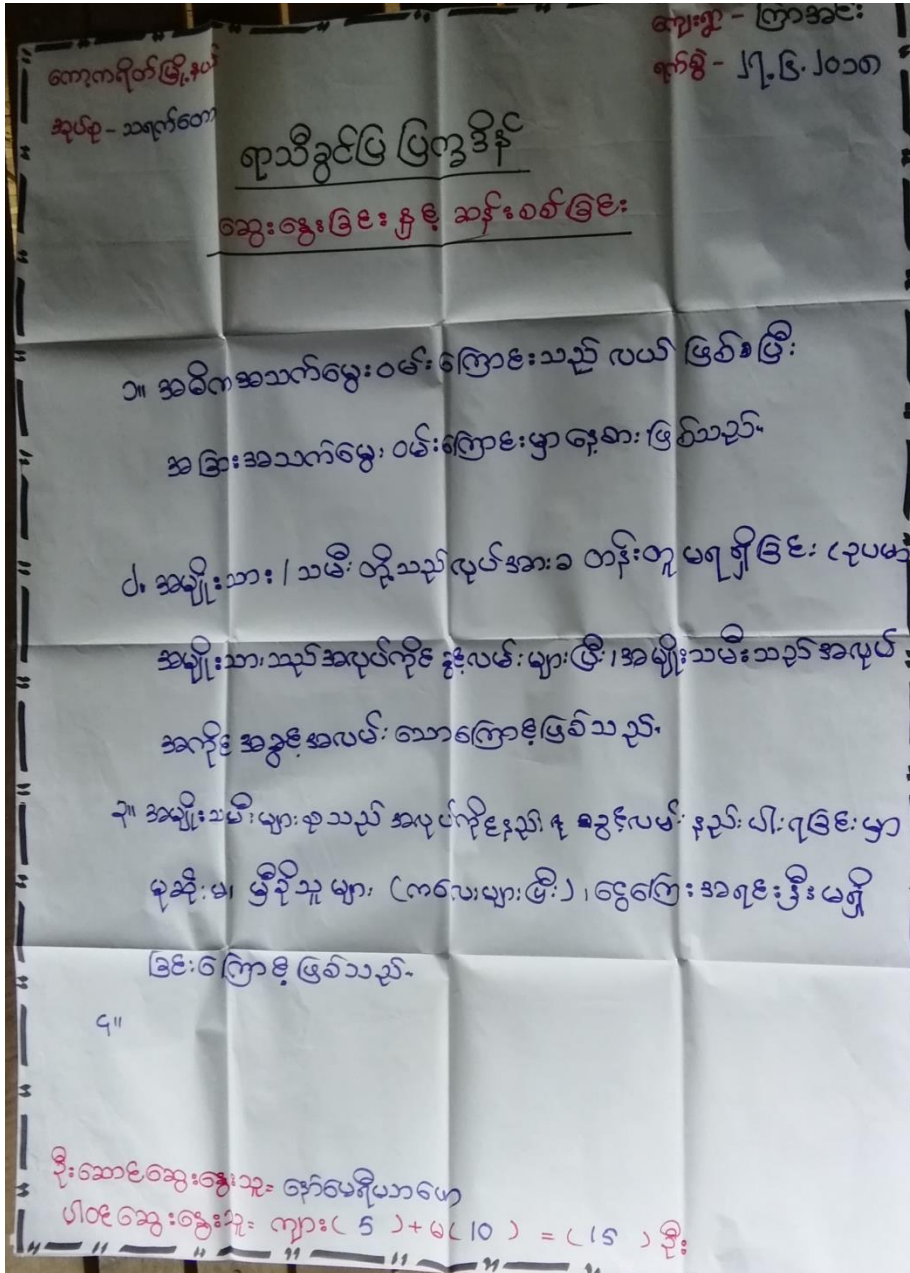 ကော့ကရိတ်မြို့နယ်
ကျေးရွာ - ကြာအင်း
အုပ်စု - သရက်တော
ရက်စွဲ - ၂၇.၆.၂၀၁၈
ရာသီခွင်ပြ ပြက္ခဒိန်
ဆွေးနွေးခြင်းနှင့် ဆန်းစစ်ခြင်း
၁။ အဓိကအသက်မွေးဝမ်းကြောင်းသည် လယ် ဖြစ်ပြီး
အခြားအသက်မွေးဝမ်းကြောင်းမှာနေ့စားဖြစ်သည်။
၂။ အမျိုးသား / သမီးတို့သည်လုပ်အားခ တန်းတူ မရရှိခြင်း (ဥပမာ
အမျိုးသားသည်အလုပ်ကိုင်ခွင့်လမ်းများပြီး၊အမျိုးသမီးသည်အလုပ်
အကိုင်အခွင့်အလမ်းသောကြောင့်ဖြစ်သည်။
၃။ အမျိုးသမီးများစုသည် အလုပ်ကိုင်နည်း ခွင့်လမ်းနည်းပါးရခြင်းမှာ
မုဆိုးမ၊ မှီခိုသူများ (ကလေးများပြီး)၊ငွေကြေးအရင်းအနှီးမရှိ
ခြင်းကြောင့်ဖြစ်သည်။
၄။
ဦးဆောင်ဆွေးနွေးသူ= နော်မေရီမာဖော
ပါဝင်ဆွေးနွေးသူ= ကျား( 5 )+မ(10 ) = (15 ) ဦး